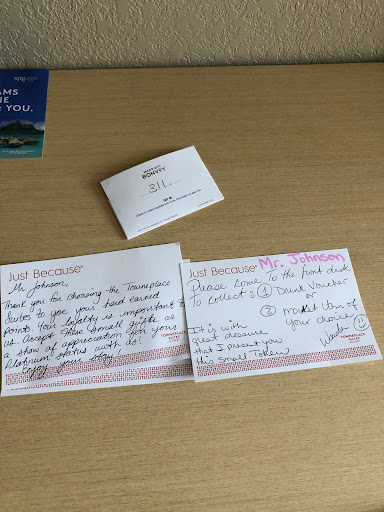 spg
AMS
NE
YOU.
MARRIOTT
BONVOY
311
Just Because
Mr. Johnson,
Thank you for choosing the Towneplace
Suites to use your hard earned
points. Your loyalty is important to
us. Accept these small gifts as
a show of appreciation for your
Platinum status with do!
Enjoy your stay!
TOWNEPLACE
SUITES
Just Because
Mr. Johnson
Please come To the front desk
To collect: ① Drink Voucher
or
② Market Item of
your choice
It is with
great pleasure
that I present you
this small Token
TOWNEPLACE
SUITES